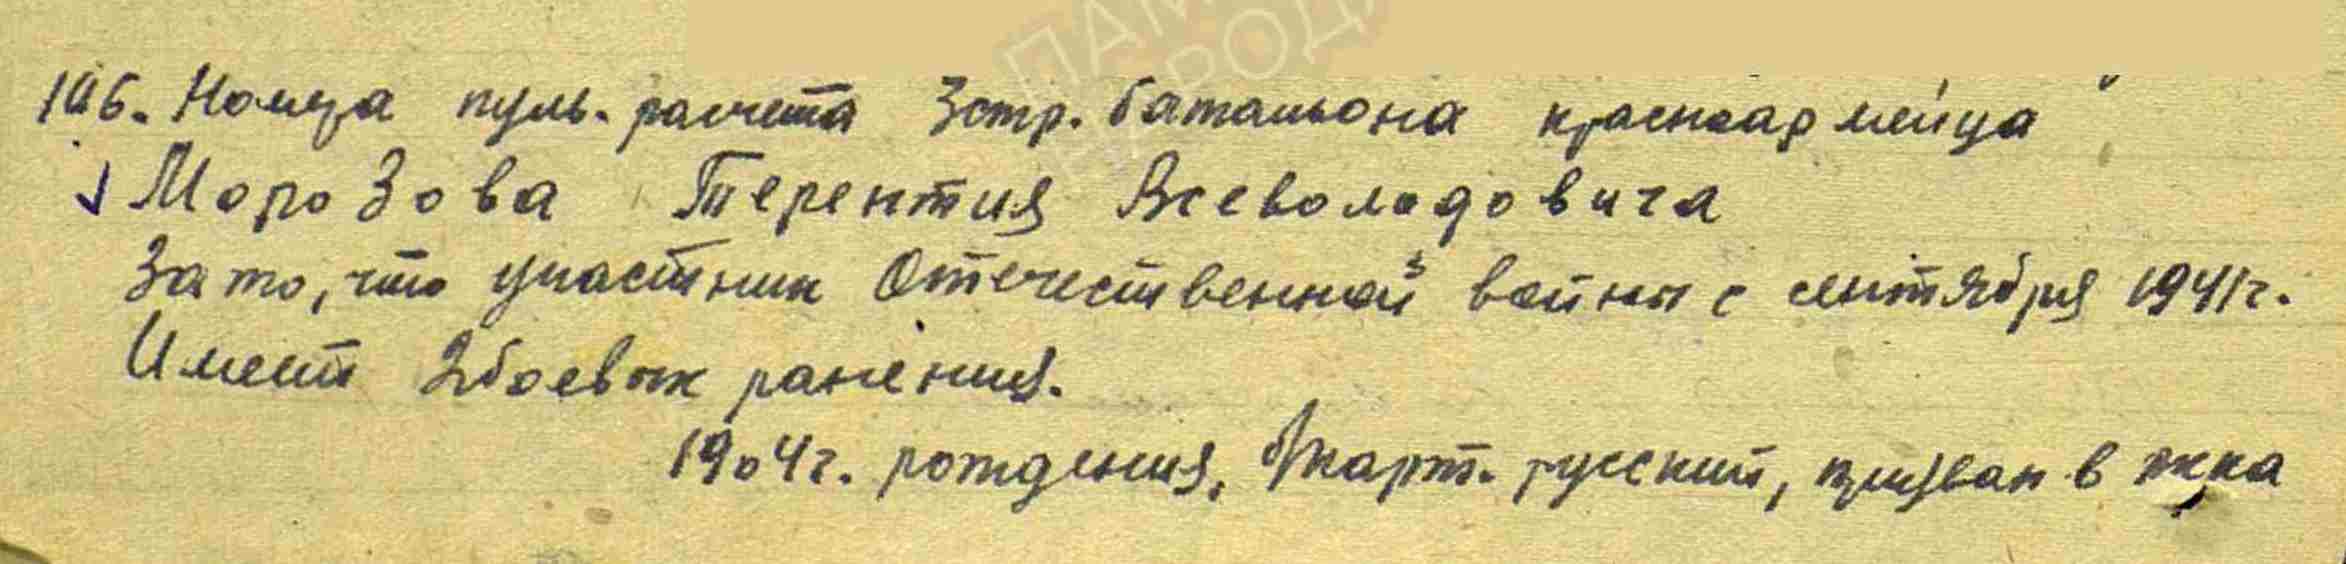 ПАМ
НАРОД
106. Номера пуль. расчета 3 стр. батальона красноармейца
Морозова Терентия Всеволодовича
За то, что участник Отечественной войны с сентября 1941 г.
Имеет 2 боевых ранения.
1904 г. рождения, б/парт. русский, призван в